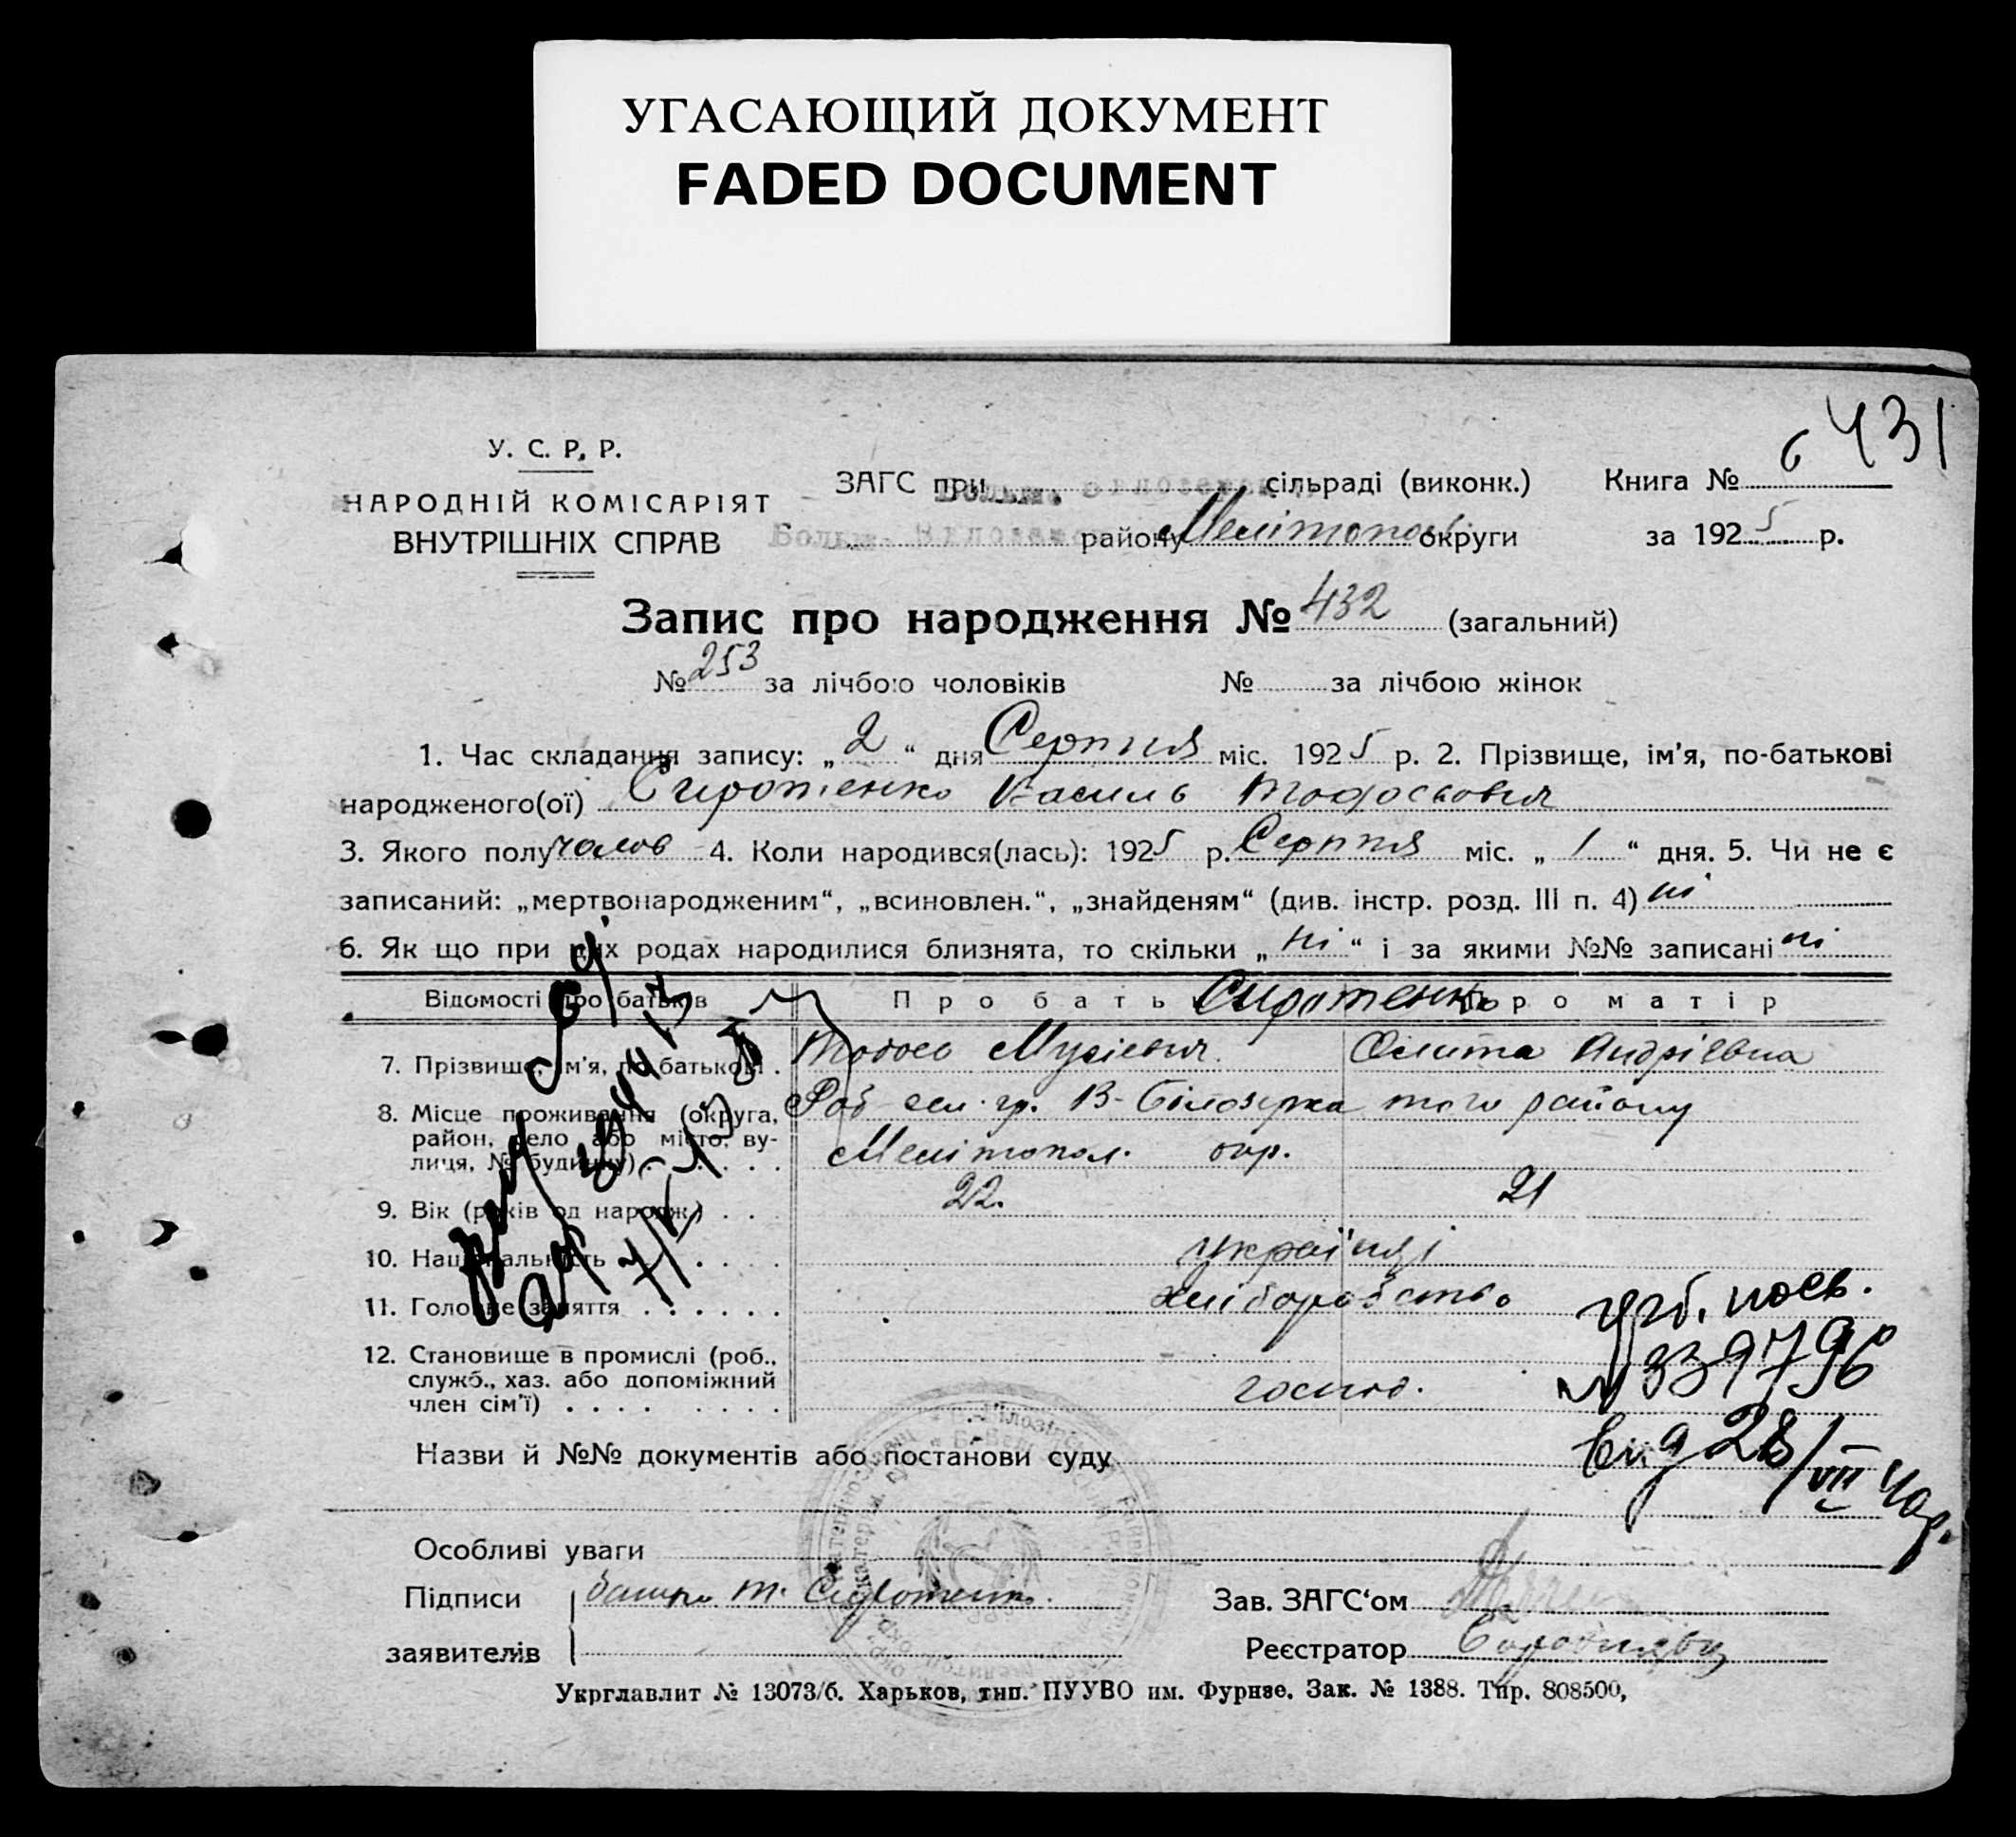 УГАСАЮЩИЙ ДОКУМЕНТ
FADED DOCUMENT
431
У. С. Р. Р.
НАРОДНІЙ КОМІСАРІЯТ
ВНУТРІШНІХ СПРАВ
ЗАГС при сільраді (виконк.)
району Мелітополь округи
Книга № 6
за 1925 р.
Запис про народження № 432 (загальний)
№ 253 за лічбою чоловіків № за лічбою жінок
1. Час складання запису: „2“ дня Серпня міс. 1925 р. 2. Прізвище, ім'я, по-батькові
народженого(ої) Сиротенко Василь Тодосьович
3. Якого полу чолов 4. Коли народився(лась): 1925 р. Серпня міс. „1“ дня. 5. Чи не є
записаний: „мертвонародженим“, „всиновлен.“, „знайденям“ (див. інстр. розд. III п. 4) ні
6. Як що при цих родах народилися близнята, то скільки „ні“ і за якими №№ записані ні
Відомості про батьків Про батька Сиротенко Про матір
7. Прізвище, ім'я, по батькові . Тодось Мусієвич Олита Андріївна
8. Місце проживання (округа, район, село або місто, вулиця, № будинку) . . . . . В-Білозірка того району
Мелітопол. окр.
9. Вік (років од народж.) . . . 22. 21
10. Національність . . . . українці
11. Головне заняття . . . . . . хліборобство
12. Становище в промислі (роб., служб., хаз. або допоміжний член сім'ї) . . . . . . . . господ.
№ 339796
вид 28/VII
Назви й №№ документів або постанови суду
Особливі уваги
Підписи заявителів батько Т. Сиротенко.
Зав. ЗАГС'ом
Реєстратор
Укрглавлит № 13073/б. Харьков, тип. ПУУВО им. Фурнзе. Зак. № 1388. Тир. 808500,